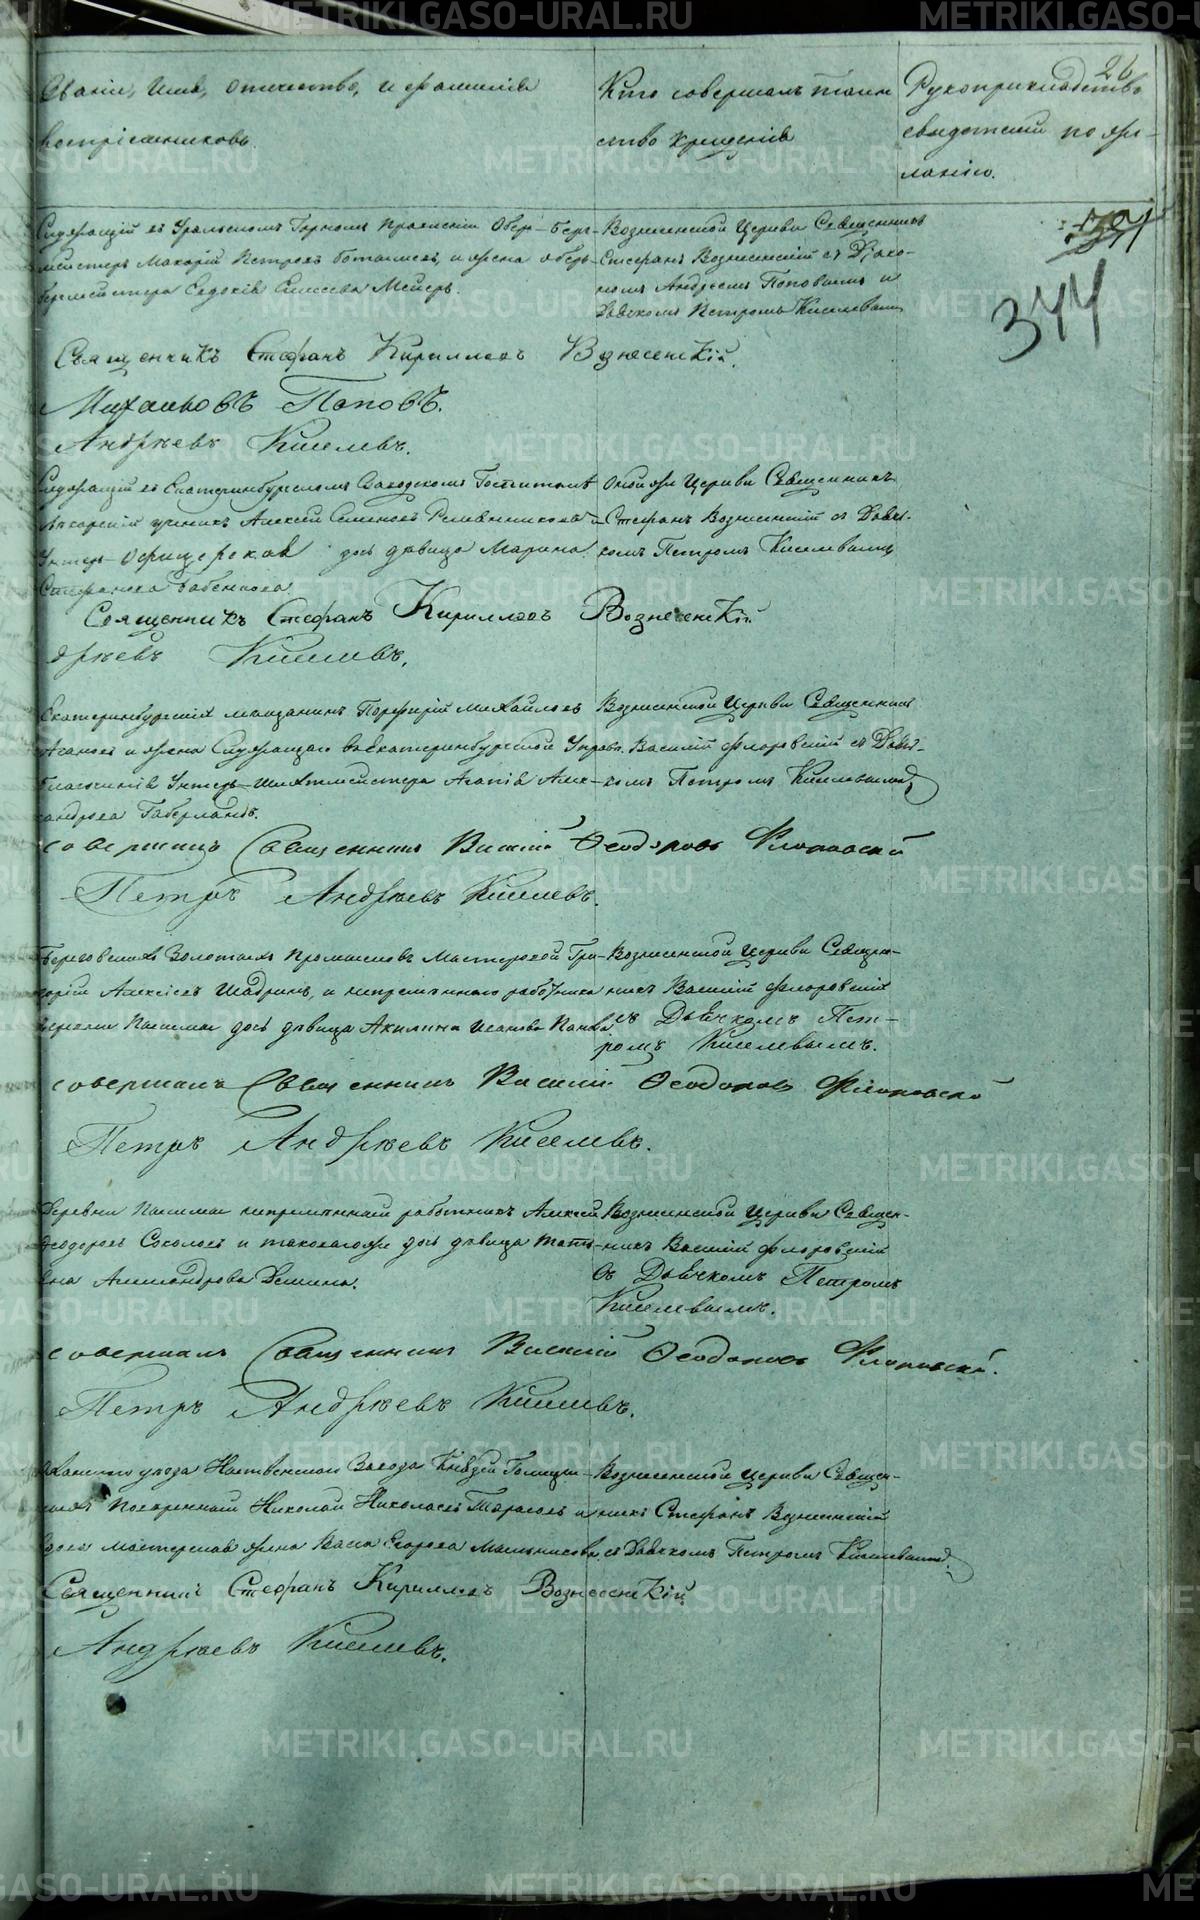 26
Званiе, Имя, отчество, и фамилiя
воспрiемниковъ.
Кто совершалъ таин
ство крещенiя
Рукоприкладство
свидетелей по же-
ланiю.
344
Служащiй въ Уральскомъ Горномъ Правленiи Оберъ-Берг-
мейстеръ Макарiй Петровъ и жена оберъ-
бергмейстера Евдокiя Мейеръ.
Вознесенской Церкви Священникъ
Стефанъ Вознесенскiй съ Дiако-
номъ Андреемъ Поповымъ и
Дьячкомъ Петромъ Киселевымъ
Священникъ Стефанъ Кирилловъ Вознесенскiй.
Михаиловъ Поповъ.
Андреевъ Киселевъ.
Служащiй въ Екатеринбургскомъ Заводскомъ Госпиталѣ
лекарскiй ученикъ Алексей Семеновъ и
Унтеръ-Офицерская дочь дѣвица Марина
Стефанова Бабенкова
Онойже Церкви Священникъ
Стефанъ Вознесенскiй съ Дьяч-
комъ Петромъ Киселевымъ
Священникъ Стефанъ Кирилловъ Вознесенскiй
дреевъ Киселевъ.
Екатеринбургскiй мещанинъ Порфирiй Михайловъ
Агановъ и жена Служащаго въ Екатеринбургской Управѣ
благочинiя Унтеръ-Шихтмейстера Агапiя Алек-
сандрова Габерландъ.
Вознесенской Церкви Священникъ
Василiй Флоровскiй съ Дьяч-
комъ Петромъ Киселевымъ
совершалъ Священникъ Василiй Ѳеодоровъ Флоровскiй
Петръ Андреевъ Киселевъ.
Березовскихъ Золотыхъ Промысловъ Мастеровой Гри-
горiй Алексѣевъ Шадринъ, и непремѣннаго работника
деревни дочь дѣвица Акилина Исакова
Вознесенской Церкви Священ-
никъ Василiй Флоровскiй
съ Дьячкомъ Пет-
ромъ Киселевымъ.
совершалъ Священникъ Василiй Ѳеодоровъ Флоровскiй
Петръ Андреевъ Киселевъ.
Деревни непремѣнный работникъ Алексѣй
Ѳеодоровъ Соколовъ и таковагоже дочь дѣвица Татi-
яна Александрова Демина.
Вознесенской Церкви Священ-
никъ Василiй Флоровскiй
съ Дьячкомъ Петромъ
Киселевымъ.
совершалъ Священникъ Василiй Ѳеодоровъ Флоровскiй.
Петръ Андреевъ Киселевъ.
Оханскаго уезда Нытвенскаго Завода Князей Голицы-
ныхъ Поверенный Николай Николаевъ Тарасовъ и
мастерская жена Васса Егорова Мельникова
Вознесенской Церкви Священ-
никъ Стефанъ Вознесенскiй
съ Дьячкомъ Петромъ Киселевымъ.
Священникъ Стефанъ Кирилловъ Вознесенскiй
Андреевъ Киселевъ.
METRIKI.GASO-URAL.RU